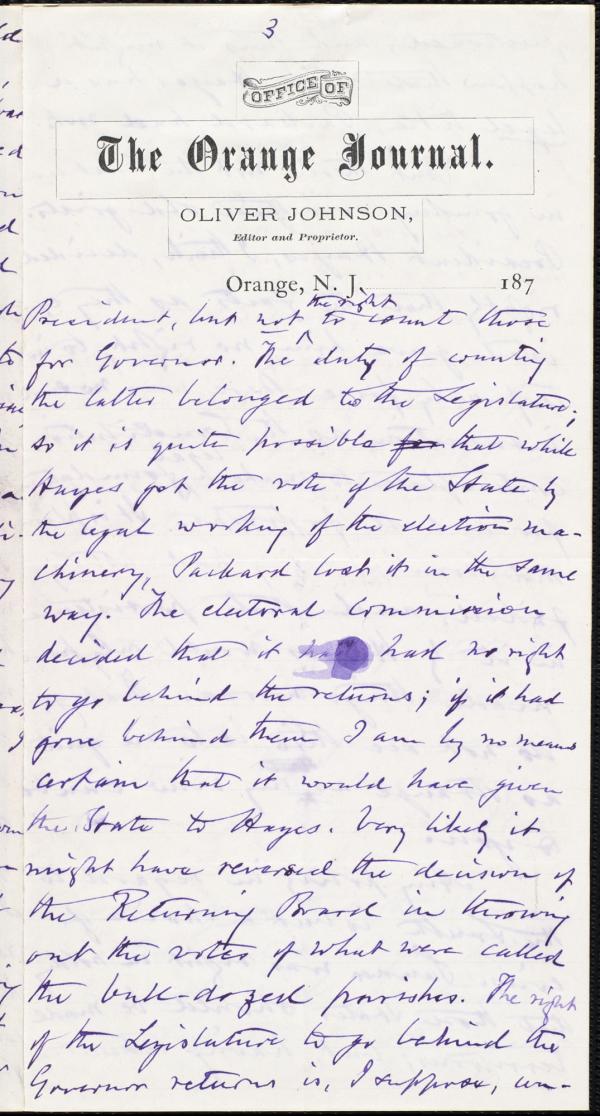 3
OFFICE OF
The Orange Journal.
OLIVER JOHNSON,
Editor and Proprietor.
Orange, N. J. 187
the right
President, but not ^ to count those
for Governor. The duty of counting
the latter belonged to the Legislature;
so it is quite possible for that while
Hayes got the vote of the State by
the legal working of the election ma-
chinery, Packard lost it in the same
way. The electoral Commission
decided that it had had no right
to go behind the returns; if it had
gone behind them I am by no means
certain that it would have given
the State to Hayes. Very likely it
might have reversed the decision of
the Returning Board in throwing
out the votes of what were called
the bull-dozed parishes. The right
of the Legislature to go behind the
Governor returns is, I suppose, un-